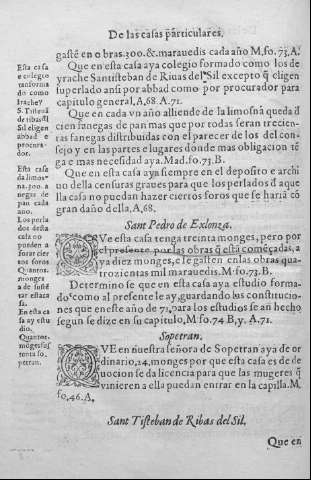 De las casas particulares.
gastē en obras.300.&.marauedis cada año M.fo.73.A.
Que en esta casa aya colegio formado como los de
yrache Santisteban de Riuas del Sil excepto q̄ eligen
superlado ansi por abbad como por procurador para
capitulo general. A,68. A.71.
Que en cada vn año alliende de la limosna queda d̄
cien fanegas de pan mas que por todas seran trecien-
ras fanegas distribuidas con el parecer de los del con-
sejo y en las partes e lugares donde mas obligacion tē
ga e mas necesidad aya. Mad.fo.73.B.
Que en esta casa aya siempre en el deposito e archi
uo della censuras graues para que los perlados d̄ aque
lla casa no puedan hazer ciertos foros que se haria cō
gran daño della, A,68.
Esta casa
e colegio
conforma
do como
Irache?
S. Tisteuā
de ribas d̄l
Sil eligen
abbad e
procura-
dor.
Esta casa
da limos-
na.300.a
negas de
pan cada
año.
Los perla
dos desta
casa no
pueden a
forar cier
tos foros
Quantos
monges
a de susté
tar esta ca
sa.
En esta ca
sa ay estu
dio.
Quantos
monges sus
tenta so_
petran.
Sant Pedro de Exlonza.
QVe esta casa tenga treinta monges, pero por
el presente por las obras q̄ estā começadas, a
ya diez monges, e se gasten en las obras qua
trozientas mil marauedis. M.fo.73.B.
Determinose que en esta casa aya estudio forma-
do como al presente le ay, guardando las constitucio-
nes que en este año de 71, para los estudios se an hecho
segun se dize en su capitulo, M fo.74 B, y. A.71.
Sopetran.
QVE en nuestra señora de Sopetran aya de or
dinario, 24, monges por que esta casa es de de
uocion se da licencia para que las mugeres q̄
vinieren a ella puedan entrar en la capilla. M.
fo,46.A.
Sant Tisteban de Ribas del Sil.
Que en